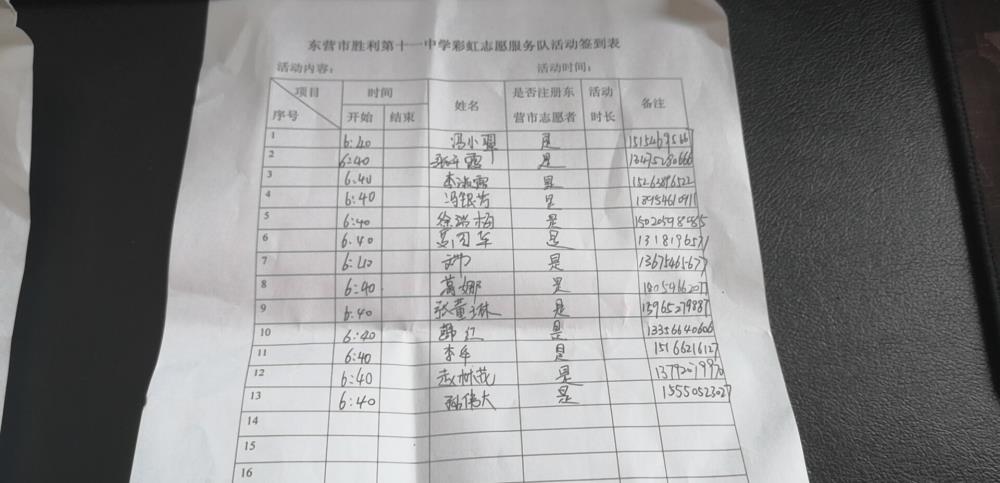 东营市胜利第十一中学彩虹志愿服务队活动签到表
活动内容： 活动时间：
项目 时间 姓名 是否注册东营市志愿者 活动时长 备注
序号 开始 结束
1 6:40 冯小翠 是
2 6:40 是 13475280666
3 6.40 李淑霞 是 15262896522
4 6:40 冯银芳 是 18954610911
5 6:40 徐瑞梅 是 15020598985
6 6.40 是 1318196571
7 6:40 是 13675465677
8 6:40 葛娜 是 18054662077
9 6.40 张董琳 是 15965279887
10 6:40 韩红 是 13356640606
11 6:40 李军 是 15166216127
12 6:40 赵树花 是 13792079970
13 6:40 孙伟大 是 15550523027
14
15
16